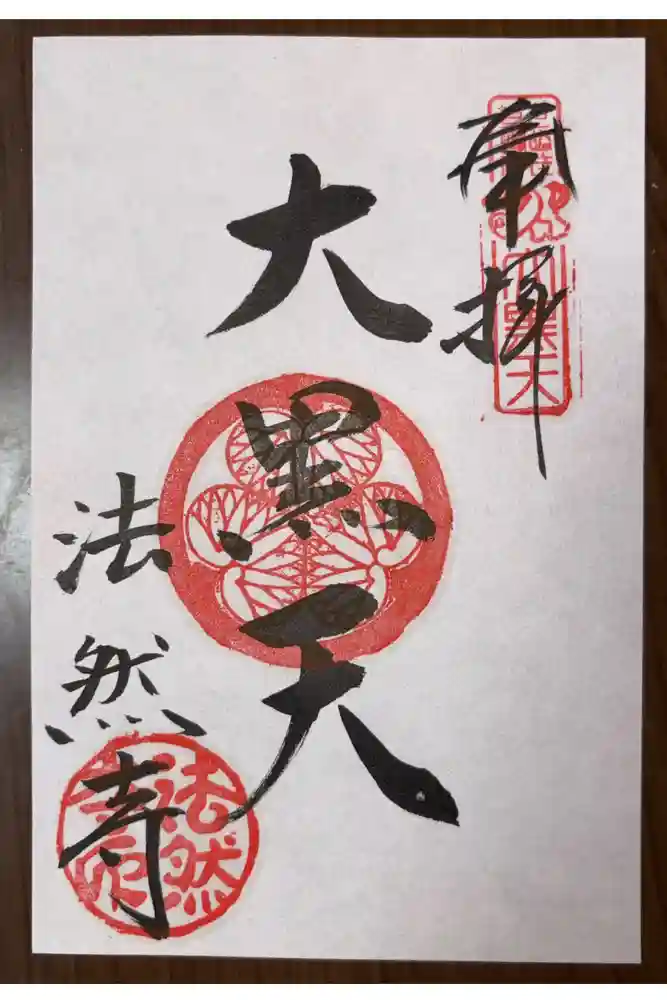 奉拝
大黒天
法然寺
大黒天
法然寺印